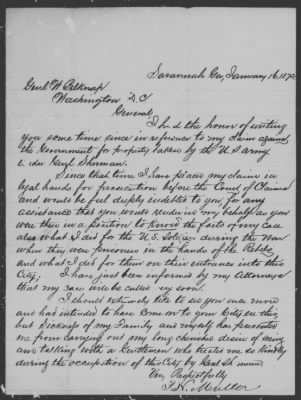 Savannah Ga, January 16, 187
Genl W Belknap
Washington D.C
General
I had the honor of writing
you some time since in reference to my claim against
the Government for property taken by the U S army
under Genl Sherman.
Since that time I have placed my claim in
legal hands for prosecution before the Court of Claims
and would be feel deeply indebted to you for any
assistance that you would render in my behalf as you
were then in a position to know the facts of my case
also what I did for the U.S. Soldiers during the War
when they were prisoners in the hands of the Rebels
and what I did for them on their entrance into this
City; I have just been informed by my Attorneys
that my case will be called in soon.
I should extremely like to see you once more
and had intended to have come on to your City on this,
but Sickness of my Family and myself has prevented
me from carrying out my long cherished desire of seeing
and talking with a Gentleman who treated me so kindly
during the occupation of this City by Genl Sherman
Very Respectfully
J. H. Mueller